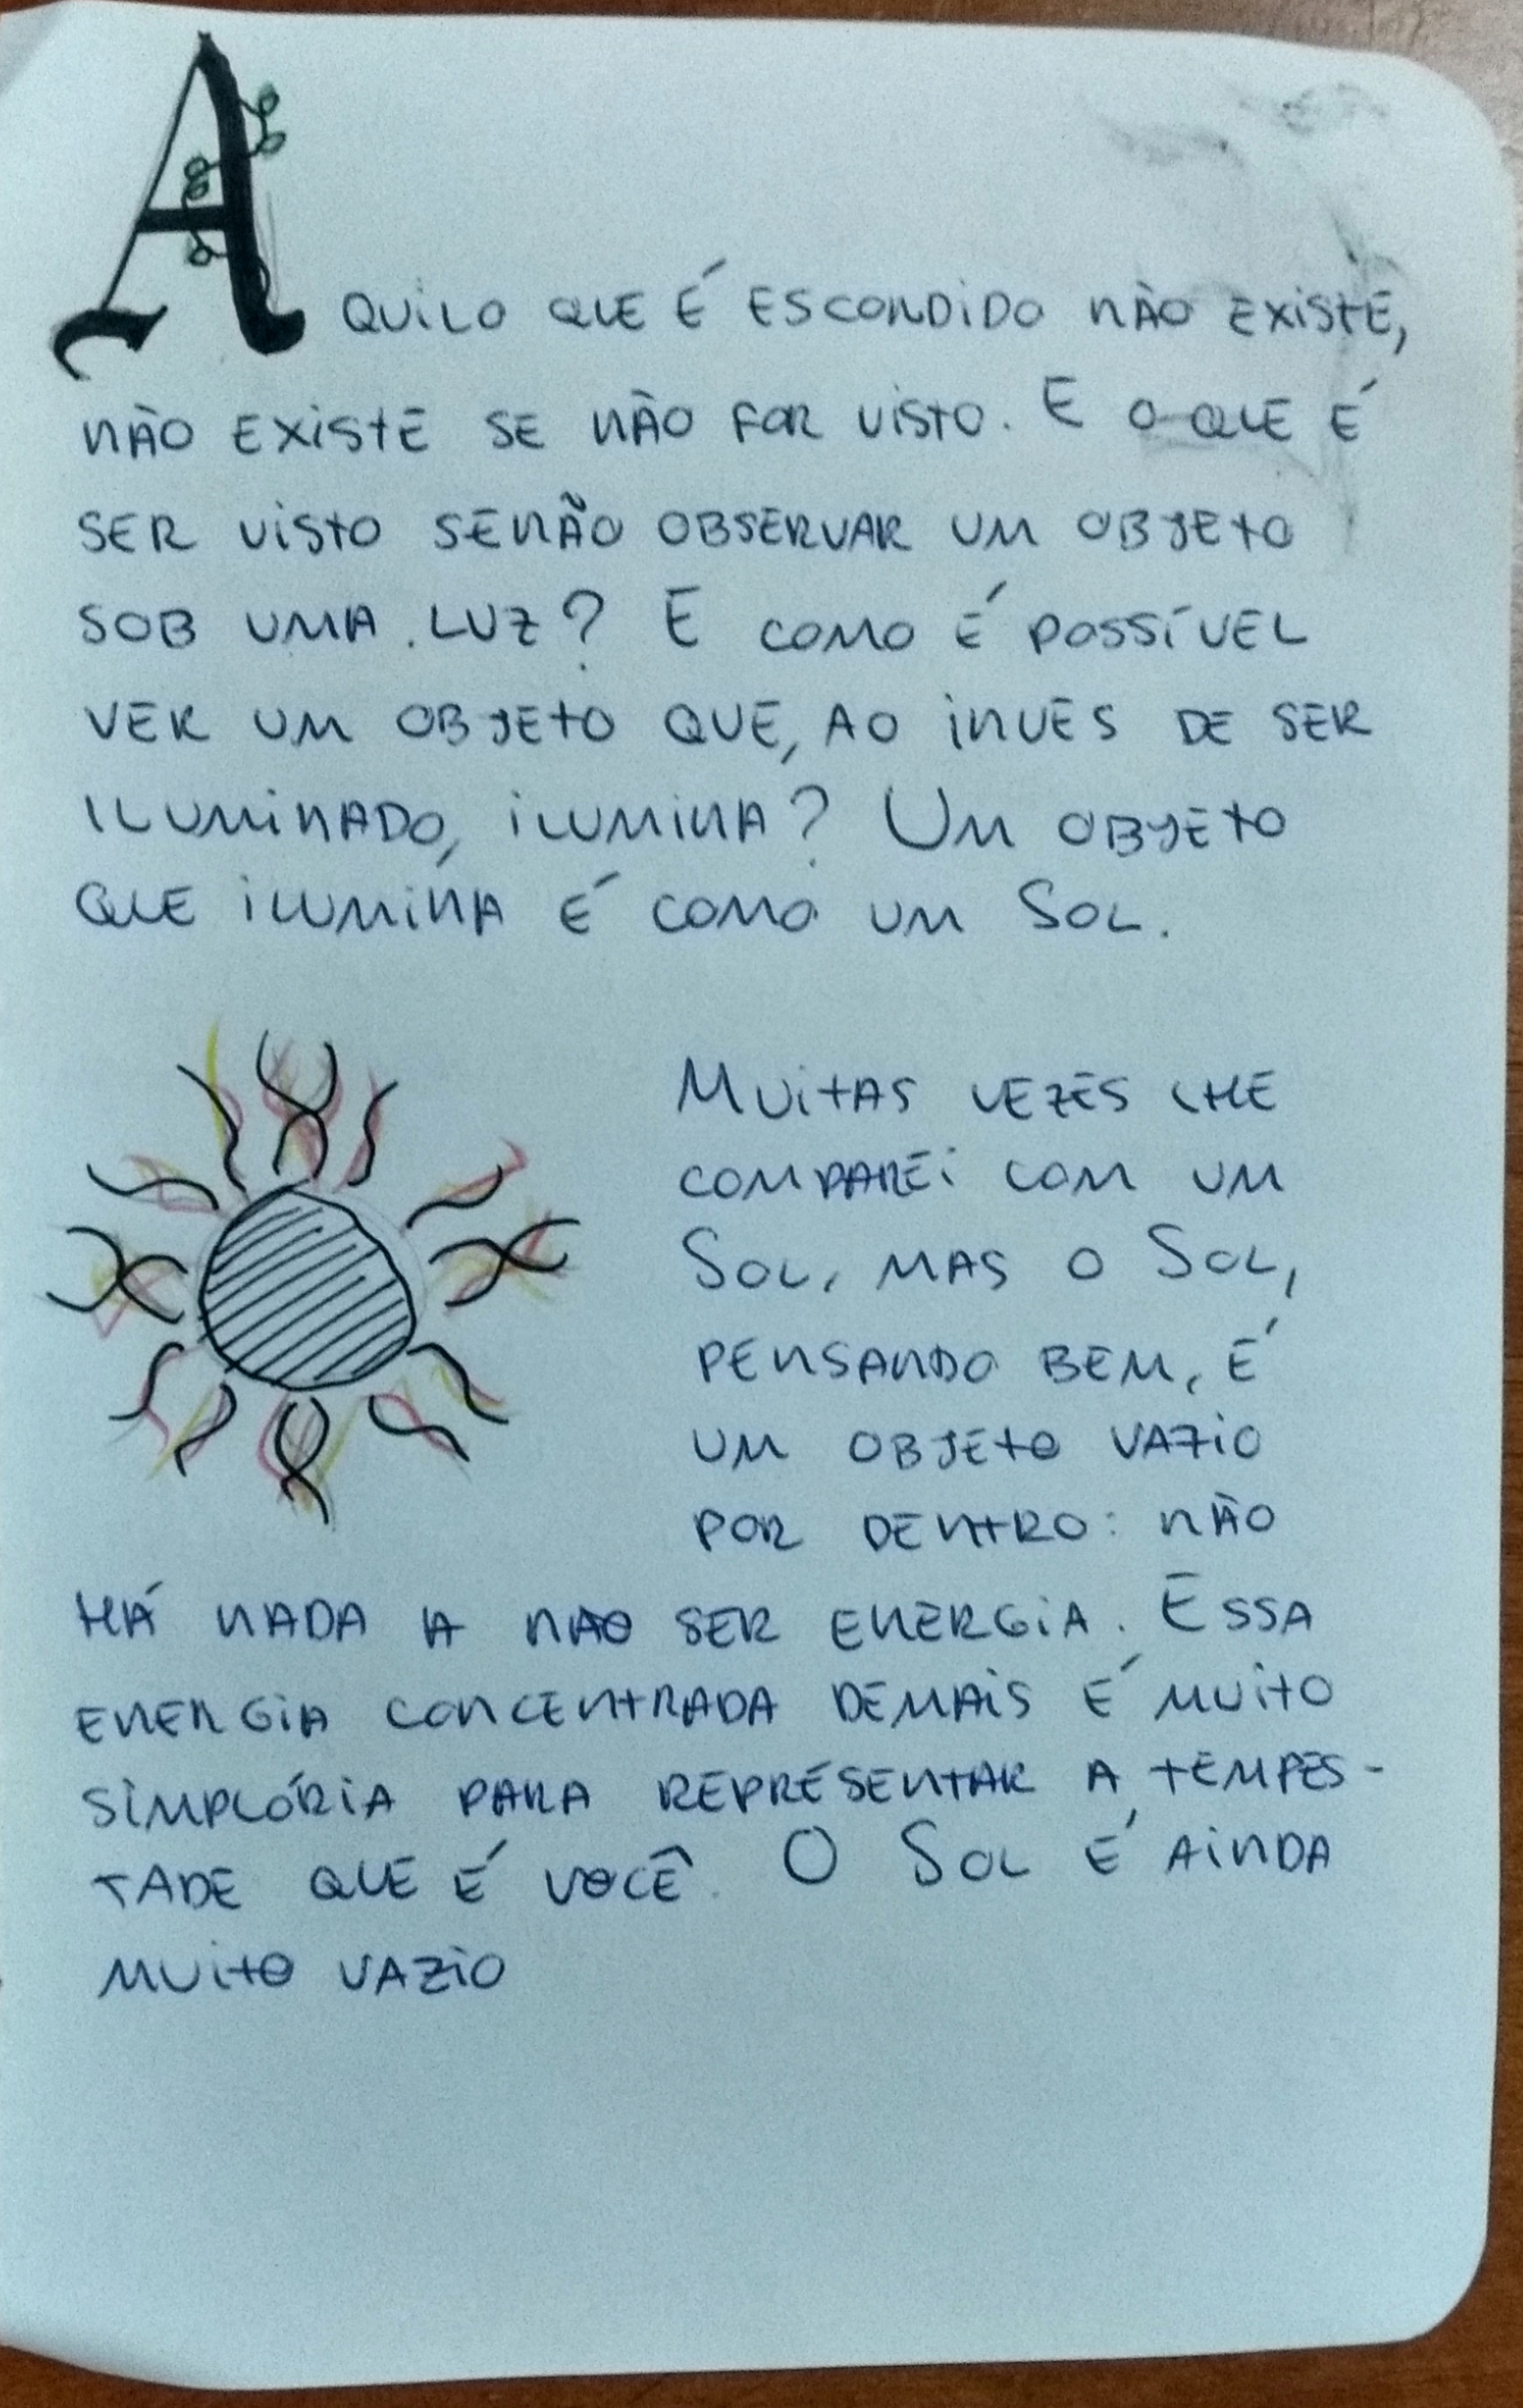 AQUILO QUE É ESCONDIDO NÃO EXISTE,
NÃO EXISTE SE NÃO FOR VISTO. E O QUE É
SER VISTO SENÃO OBSERVAR UM OBJETO
SOB UMA LUZ? E COMO É POSSÍVEL
VER UM OBJETO QUE, AO INVES DE SER
ILUMINADO, ILUMINA? UM OBJETO
QUE ILUMINA É COMO UM SOL.
MUITAS VEZES LHE
COMPAREI COM UM
SOL, MAS O SOL,
PENSANDO BEM, É
UM OBJETO VAZIO
POR DENTRO: NÃO
HÁ NADA A NAO SER ENERGIA. ESSA
ENERGIA CONCENTRADA DEMAIS É MUITO
SIMPLÓRIA PARA REPRESENTAR A TEMPES-
TADE QUE É VOCÊ. O SOL É AINDA
MUITO VAZIO